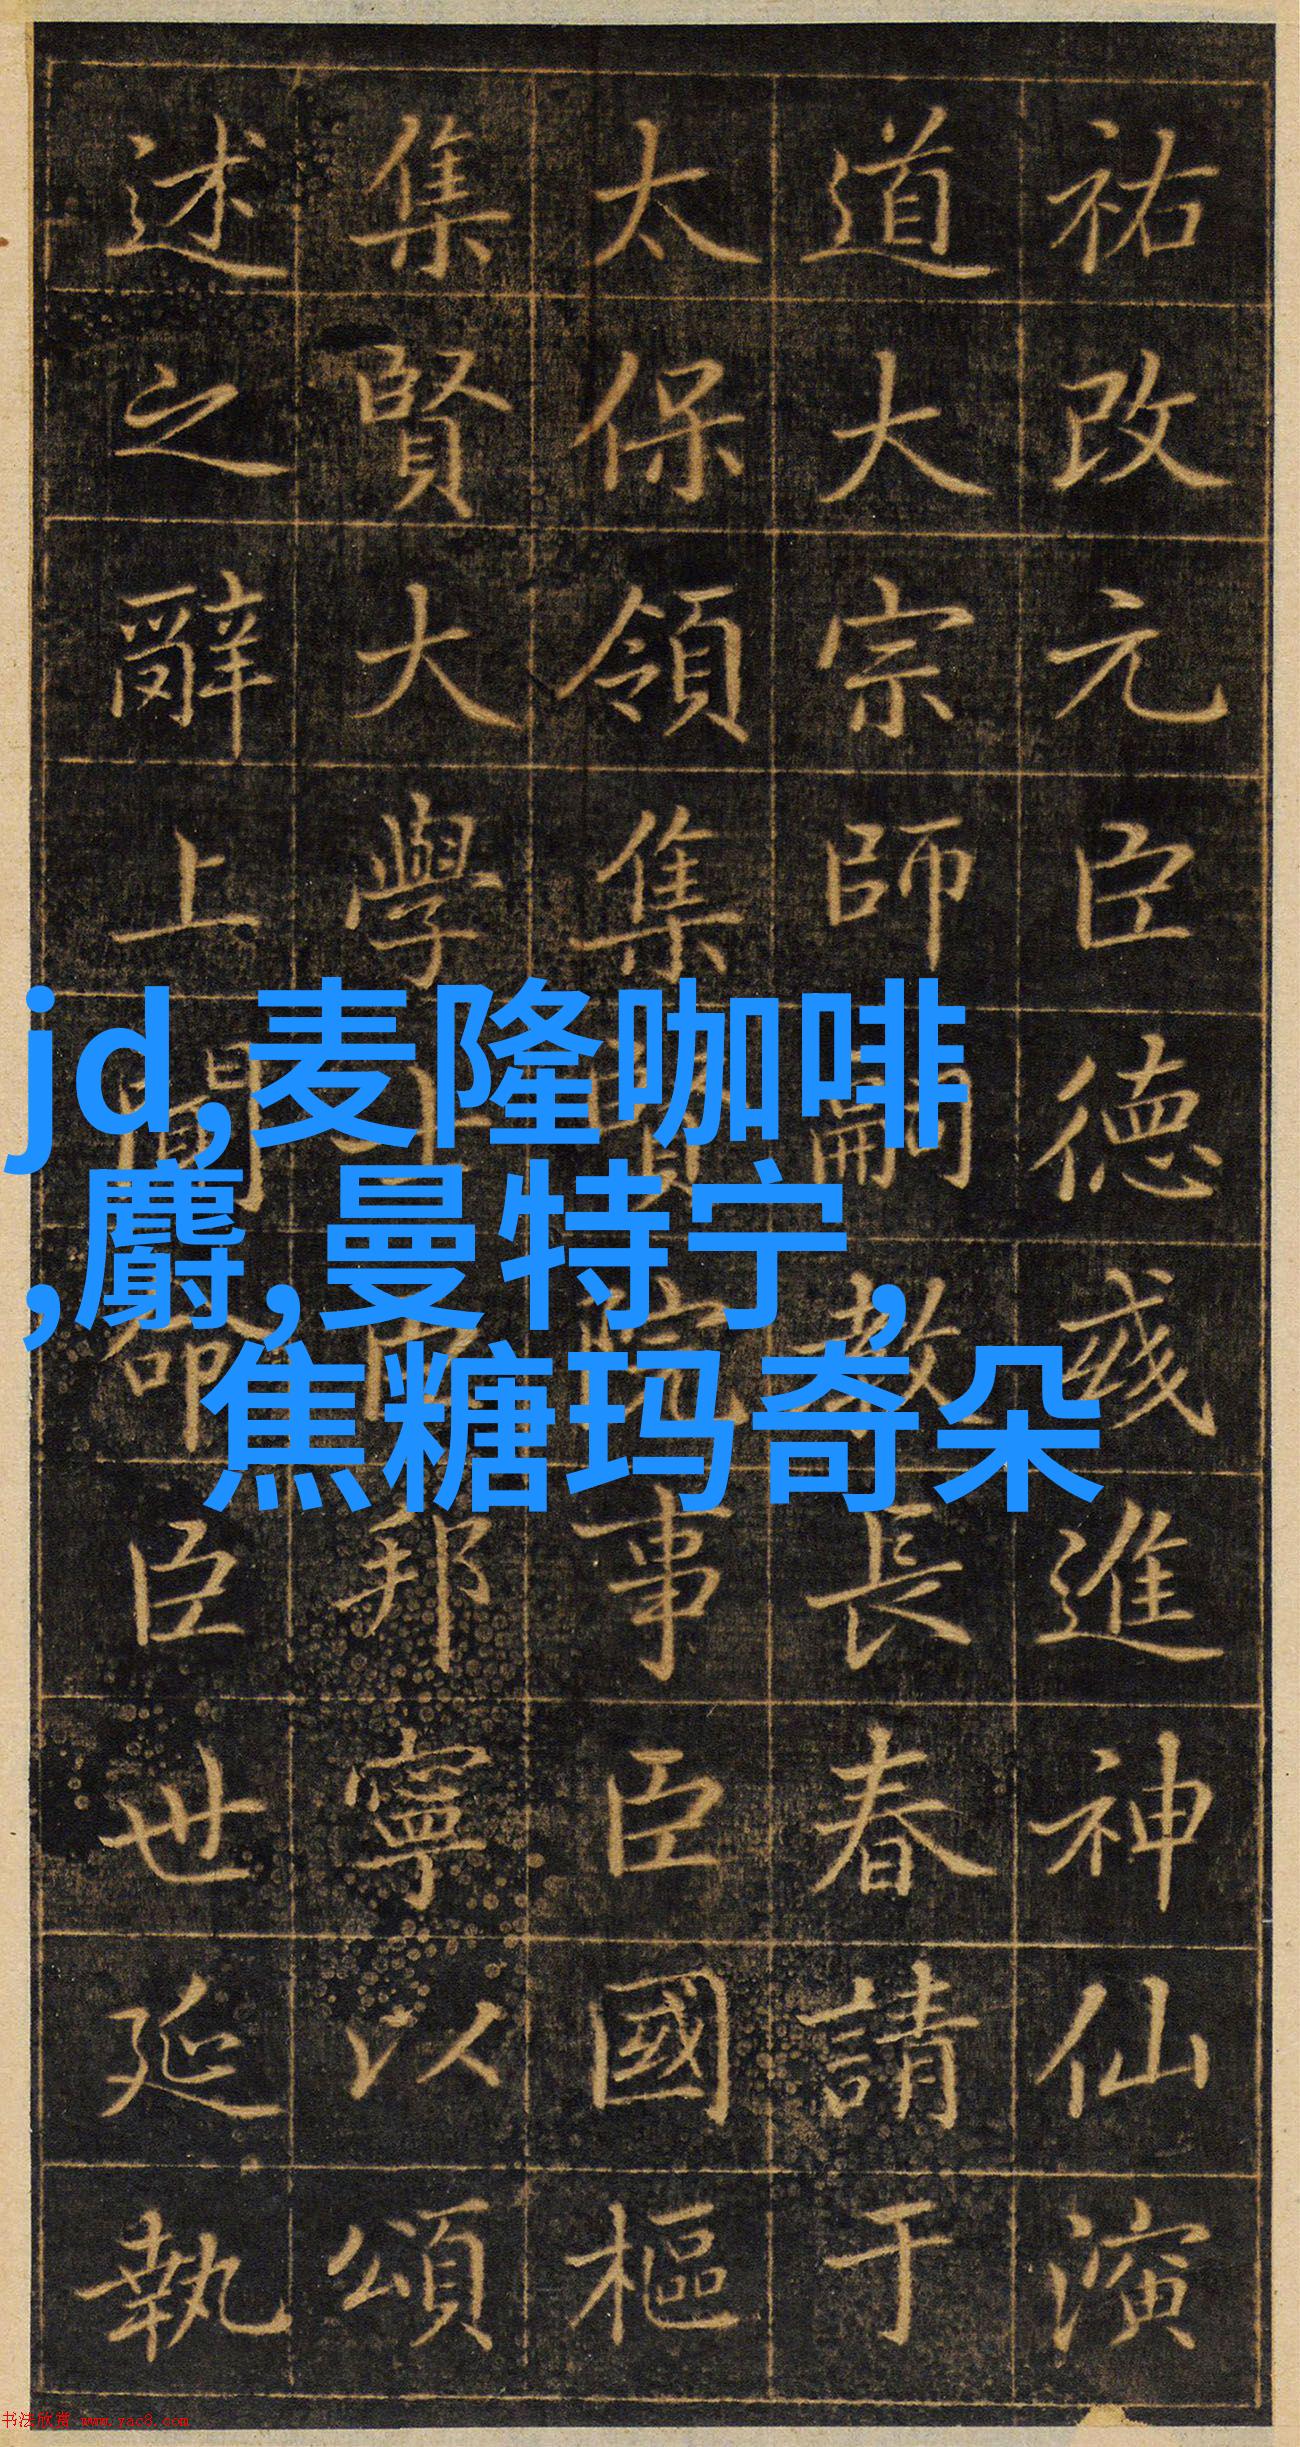 祐改元臣德彧進神仙演
道大宗師嗣教長春請于
太保領集賢院事臣國樞
集賢大學士臣邦寧以頌
述之辭上聞命臣世延執
jd,麦隆咖啡
,麝,曼特宁,
焦糖玛奇朵
书法欣赏 www.yac8.com